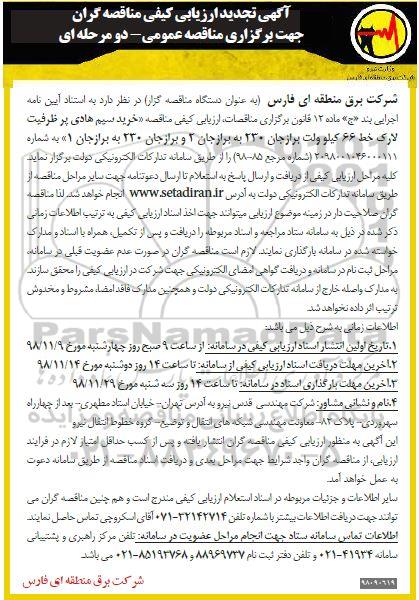 آگهی تجدید ارزیابی کیفی مناقصه گران
جهت برگزاری مناقصه عمومی – دو مرحله ای
وزارت نیرو
شرکت برق منطقه‌ای فارس
شرکت برق منطقه ای فارس (به عنوان دستگاه مناقصه گزار) در نظر دارد به استناد آیین نامه
اجرایی بند «ج» ماده ۱۲ قانون برگزاری مناقصات، ارزیابی کیفی مناقصه «خرید سیم هادی پر ظرفیت
لارک خط ۶۶ کیلو ولت برازجان ۲۳۰ به برازجان ۲ و برازجان ۲۳۰ به برازجان ۱» به شماره
۲۰۹۸۰۰۱۰۴۶۰۰۰۱۱۱ (شماره مرجع ۸۵-۹۸) را از طریق سامانه تدارکات الکترونیکی دولت برگزار نماید.
کلیه مراحل ارزیابی کیفی از دریافت و ارسال پاسخ به استعلام تا ارسال دعوتنامه جهت سایر مراحل مناقصه از
طریق سامانه تدارکات الکترونیکی دولت به آدرس www.setadiran.ir انجام خواهد شد. لذا مناقصه
گران صلاحیت دار در زمینه موضوع ارزیابی میتوانند جهت اخذ اسناد ارزیابی کیفی به ترتیب اطلاعات زمانی
ذکر شده در ذیل به سامانه ستاد مراجعه و اسناد مربوطه را دریافت و پس از تکمیل، همراه با اسناد و مدارک
خواسته شده در سامانه بارگذاری نمایند. لازم است مناقصه گران در صورت عدم عضویت قبلی در سامانه،
مراحل ثبت نام در سامانه و دریافت گواهی امضای الکترونیکی جهت شرکت در ارزیابی کیفی را محقق سازند.
به مدارک واصله خارج از سامانه تدارکات الکترونیکی دولت و همچنین مدارک فاقد امضا، مشروط و مخدوش
ترتیب اثر داده نخواهد شد.
اطلاعات زمانی به شرح ذیل می باشد:
۱.تاریخ اولین انتشار اسناد ارزیابی کیفی در سامانه: از ساعت ۹ صبح روز چهارشنبه مورخ ۹۸/۱۱/۹
۲.آخرین مهلت دریافت اسناد ارزیابی کیفی از سامانه: تا ساعت ۱۴ روز دوشنبه مورخ ۹۸/۱۱/۱۴
۳.آخرین مهلت بارگذاری اسناد در سامانه: تا ساعت ۱۴ روز سه شنبه مورخ ۹۸/۱۱/۲۹
۴.نام و نشانی مشاور: شرکت مهندسی قدس نیرو به آدرس تهران- خیابان استاد مطهری- بعد از چهارراه
سهروردی- پلاک ۸۲- معاونت مهندسی شبکه های انتقال و توضیع- گروه خطوط انتقال نیرو
این آگهی به منظور ارزیابی کیفی مناقصه گران انتشار یافته و پس از کسب حداقل امتیاز لازم در فرایند
ارزیابی، از مناقصه گران واجد شرایط جهت مراحل بعدی و دریافت اسناد مناقصه از طریق سامانه دعوت
به عمل خواهد آمد.
سایر اطلاعات و جزئیات مربوطه در اسناد استعلام ارزیابی کیفی مندرج است و هم چنین مناقصه گران می
توانند جهت دریافت اطلاعات بیشتر با شماره تلفن ۳۲۱۴۲۷۱۴-۰۷۱ آقای اسکروچی تماس حاصل نمایند.
اطلاعات تماس سامانه ستاد جهت انجام مراحل عضویت در سامانه: مرکز راهبری و پشتیبانی سامانه
۴۱۹۳۴-۰۲۱ و تلفن دفتر ثبت نام ۸۸۹۶۹۷۳۷ و ۸۵۱۹۳۷۶۸-۰۲۱ می باشد.
شرکت برق منطقه ای فارس
۹۸۰۹۰۶۱۹
ParsNamadData